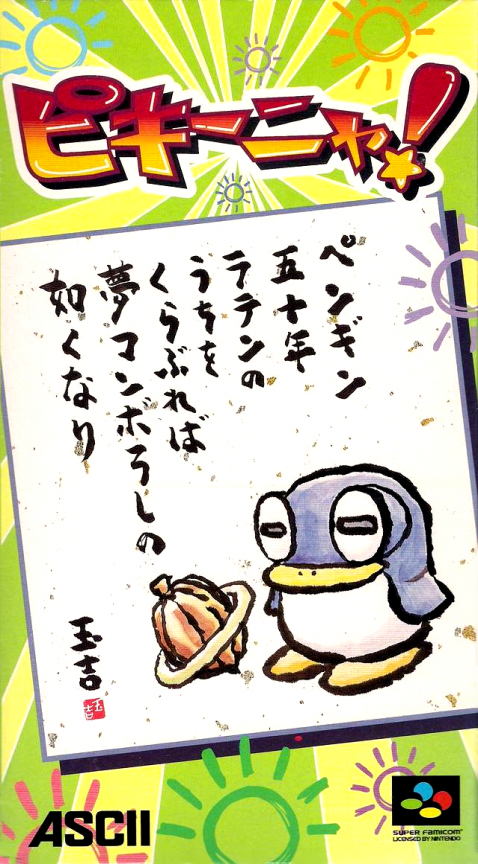 ピキーニャ!
ペンギン
五十年
ラテンの
うちを
くらぶれば
夢マンボうしの
如くなり
玉吉
玉吉
ASCII
SUPER FAMICOM
LICENSED BY NINTENDO